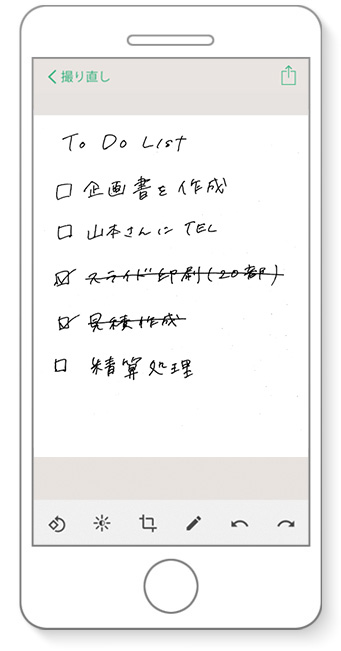 撮り直し
To Do List
企画書を作成
山本さんに TEL
スライド印刷(20部)
見積作成
精算処理